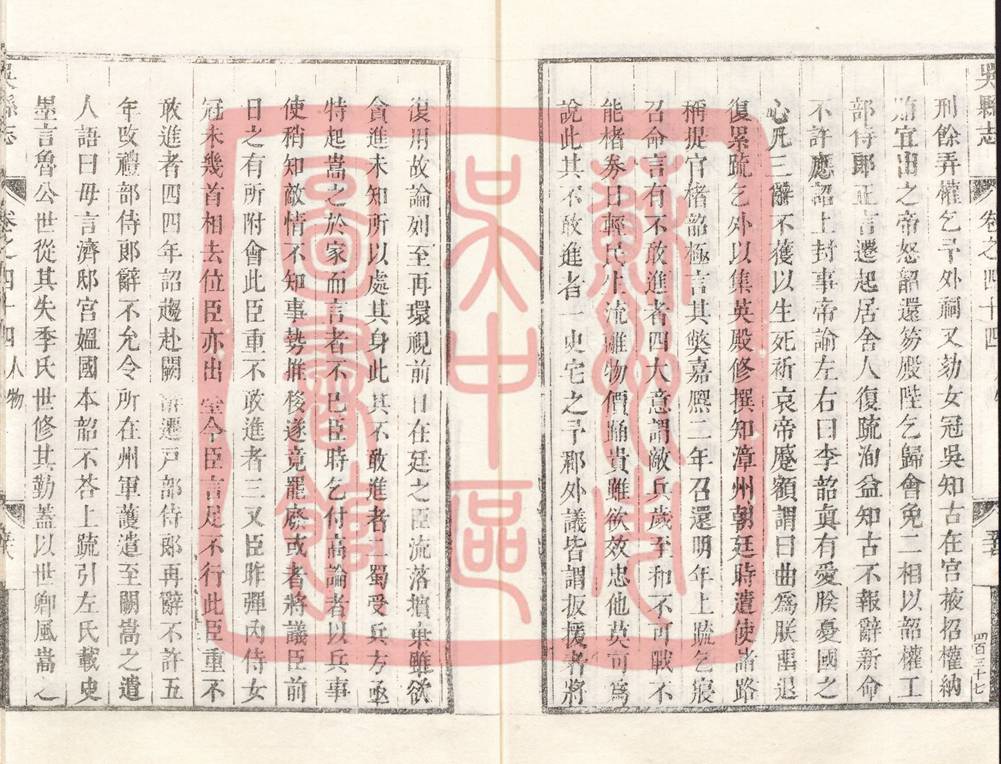 吳縣志
卷之四十四
四百三十七
刑餘弄權乞予外祠又劾女冠吳知古在宫掖招權納
賄宜出之帝怒韶還笏殿陛乞歸會免二相以韶權工
部侍郎正言遷起居舍人復疏洵益知古不報辭新命
不許應詔上封事帝諭左右曰李韶真有愛朕憂國之
心凡三辭不獲以生死祈哀帝蹙額謂曰曲爲朕畱退
復累疏乞外以集英殿修撰知漳州朝廷時遣使諸路
稱提官楮韶極言其弊嘉熙二年召還明年上疏乞寢
召命言有不敢進者四大意謂敵兵歲至和不可戰不
能楮券日輕民生流離物價踊貴雖欲效忠他莫可爲
說此其不敢進者一史宅之予郡外議皆謂扳援者將
復用故論列至再環視前日在廷之臣流落擯棄雖欲
貪進未知所以處其身此其不敢進者二蜀受兵方亟
特起嵩之於家而言者不已臣時乞付高論者以兵事
使稍知敵情不知事勢推移遂竟罷廢或者將議臣前
日之有所附會此臣重不敢進者三又臣昨彈內侍女
冠未幾首相去位臣亦出 今臣言足不行此臣重不
敢進者四四年詔趨赴闕 遷戸部侍郎再辭不許五
年改禮部侍郎辭不允令所在州軍護遣至闕嵩之遣
人語曰毋言濟邸宫媼國本韶不荅上疏引左氏載史
墨言魯公世從其失季氏世修其勤蓋以世卿風嵩之
縣志
卷之四十四 人物
蘇州市
吳中區
圖書館